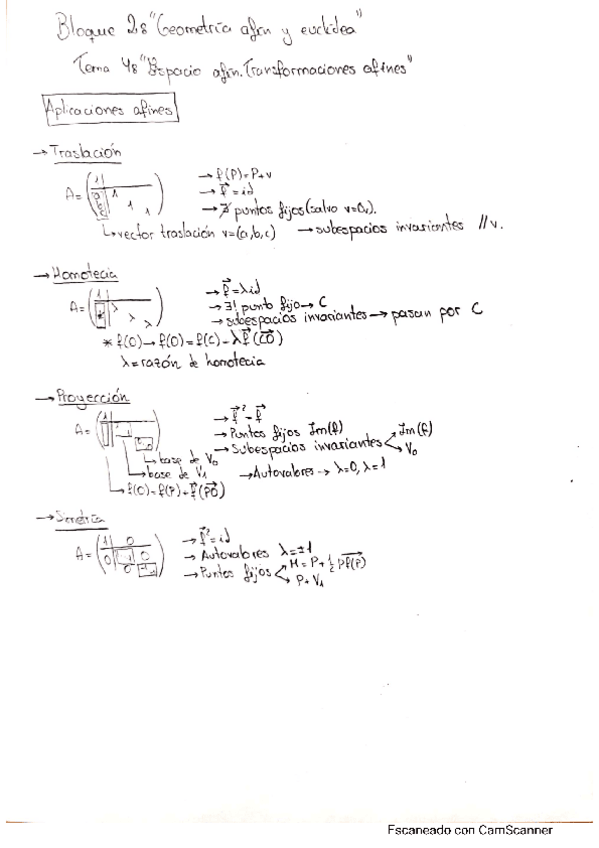 Bloque 2: "Geometría afín y euclídea"
Tema 4: "Espacio afín. Transformaciones afines"
Aplicaciones afines
→ Traslación
→ f(P)=P+v
→ f⃗ = id
→ ∄ puntos fijos (salvo v=0).
A = ( 1 | a b c 1 1 1 )
↳ vector traslación v=(a,b,c) → subespacios invariantes // v.
→ Homotecia
→ f⃗ = λid
→ ∃! punto fijo → C
→ subespacios invariantes → pasan por C
A = ( 1 | * λ λ λ )
* f(O) → f(O) = f(C) - λf⃗(CO)
λ = razón de homotecia
→ Proyección
→ f⃗² = f⃗
→ Puntos fijos Im(f)
→ Subespacios invariantes Im(f) V₀
A = ( 1 | )
base de V₀
base de V₁ → Autovalores → λ=0, λ=1
→ f(O) = f(P) + f⃗(PO)
→ Simetría
→ f⃗² = id
→ Autovalores λ=±1
→ Puntos fijos M = P + ½ Pf(P)
P + V₁
A = ( 1 0 0 1 0 0 -1 )
Escaneado con CamScanner